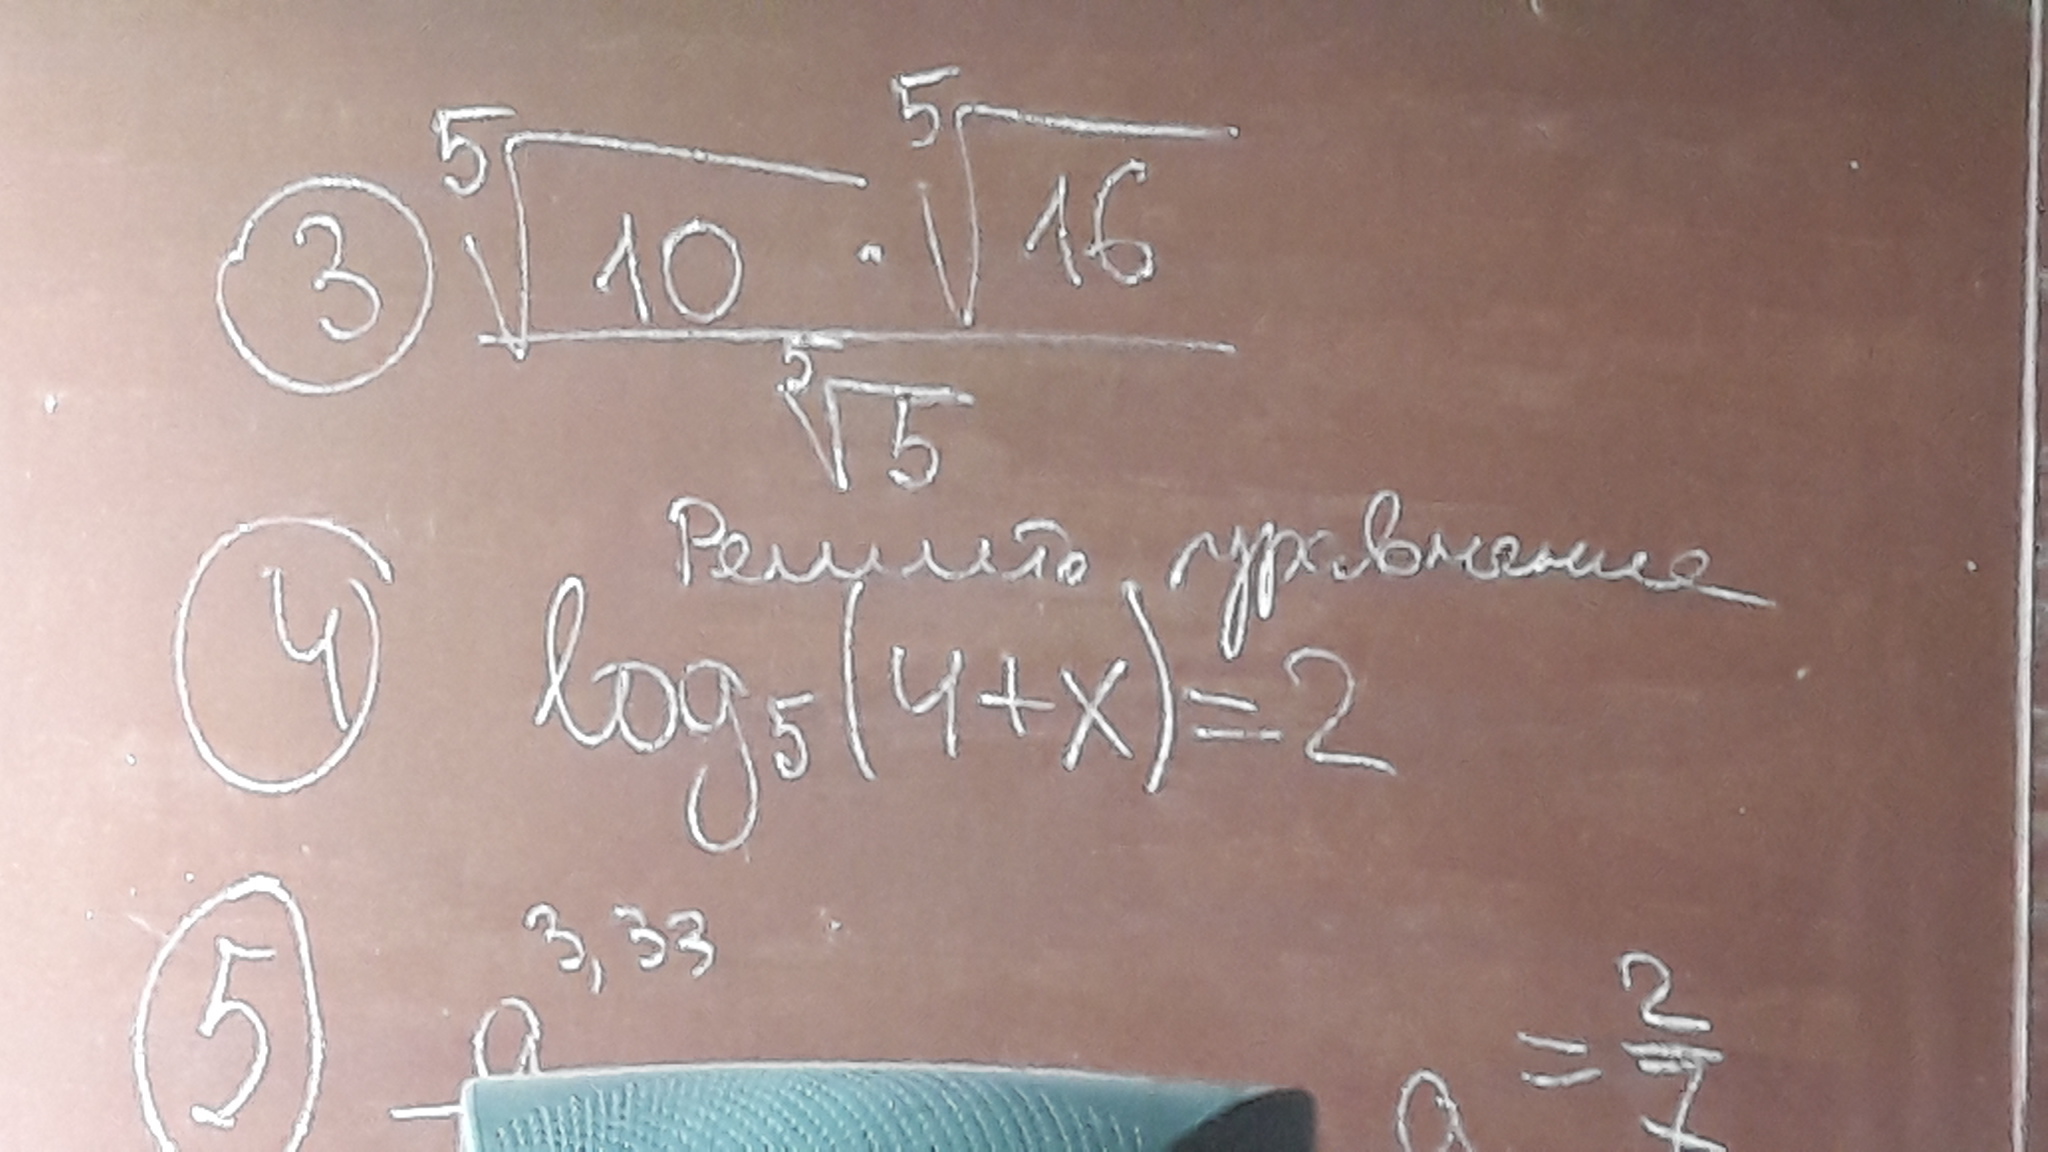 ③ ⁵√10 · ⁵√16
⁵√5
④ Решите уравнение
log₅(4+x)=2
⑤ a^3,33
a = 2/7